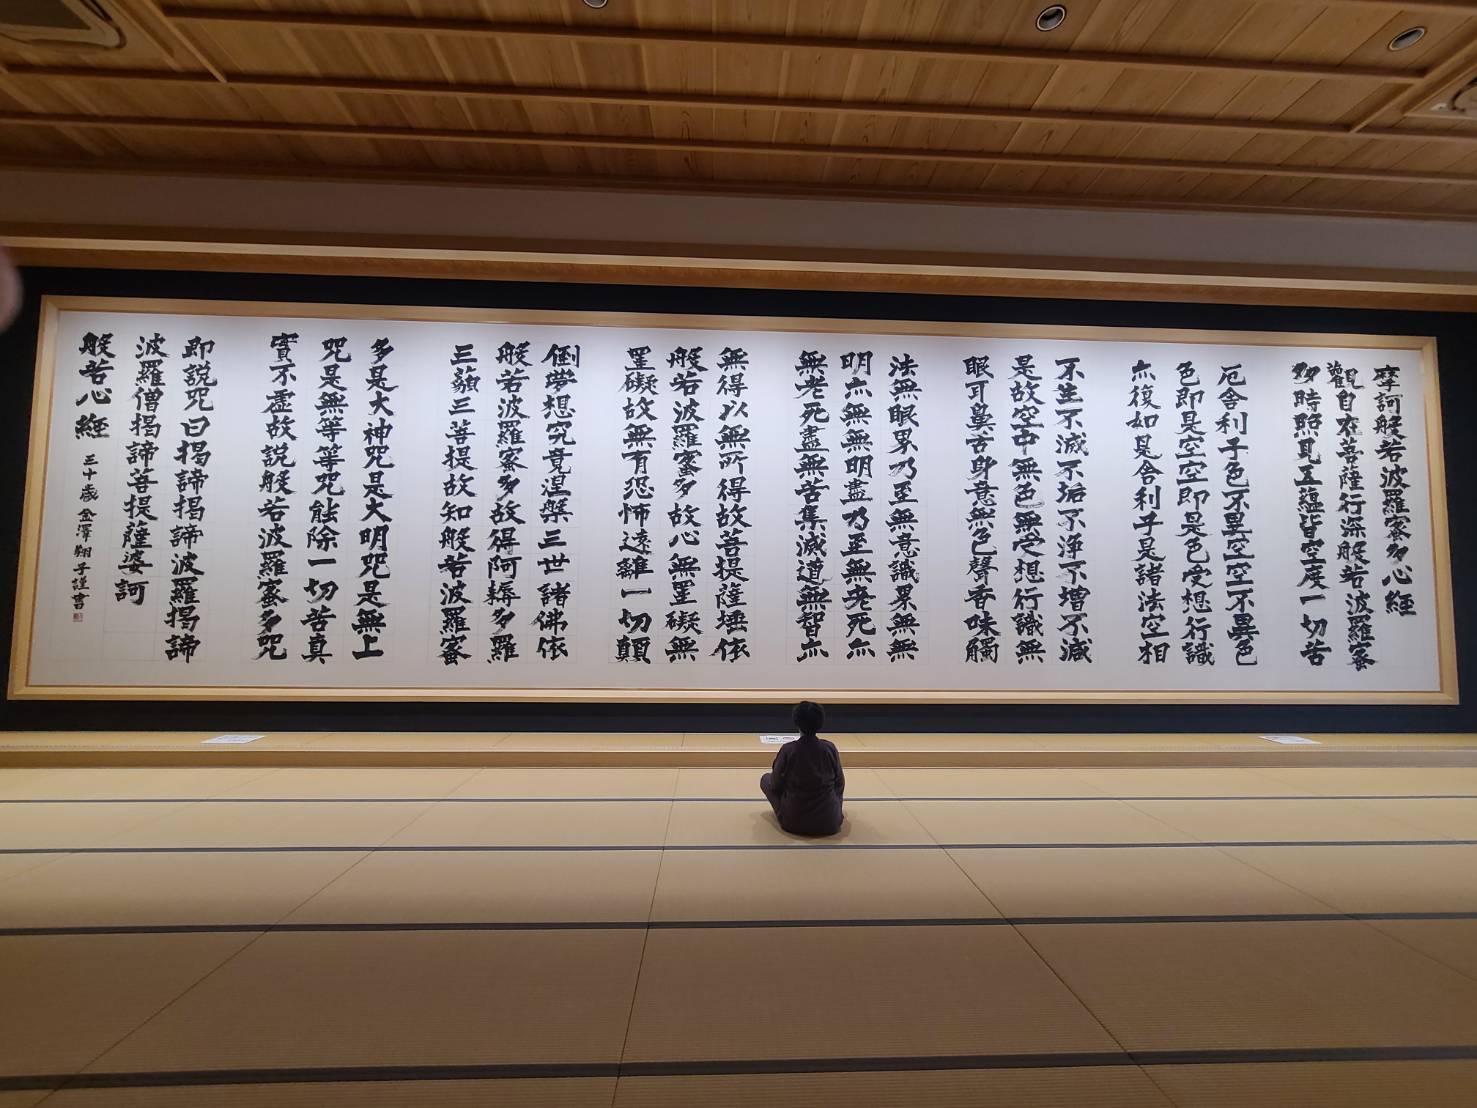 摩訶般若波羅蜜多心経
觀自在菩薩行深般若波羅蜜
多時照見五蘊皆空度一切苦
厄舎利子色不異空空不異色
色即是空空即是色受想行識
亦復如是舎利子是諸法空相
不生不滅不垢不浄不増不減
是故空中無色無受想行識無
眼耳鼻舌身意無色聲香味觸
法無眼界乃至無意識界無無
明亦無無明盡乃至無老死亦
無老死盡無苦集滅道無智亦
無得以無所得故菩提薩埵依
般若波羅蜜多故心無罣礙無
罣礙故無有恐怖遠離一切顛
倒夢想究竟涅槃三世諸佛依
般若波羅蜜多故得阿耨多羅
三藐三菩提故知般若波羅蜜
多是大神呪是大明呪是無上
呪是無等等呪能除一切苦真
實不虚故説般若波羅蜜多呪
即説呪曰掲諦掲諦波羅掲諦
波羅僧掲諦菩提薩婆訶
般若心経 三十歳 金澤翔子謹書